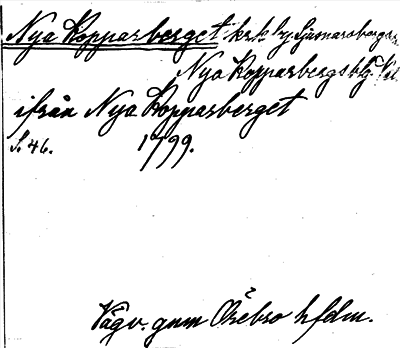 Nya Kopparberget krk by Ljusnarsbergs
Nya Kopparbergs bg
ifrån Nya Kopparberget
S. 46. 1799.
Vägv. gnm Örebro hfdm.